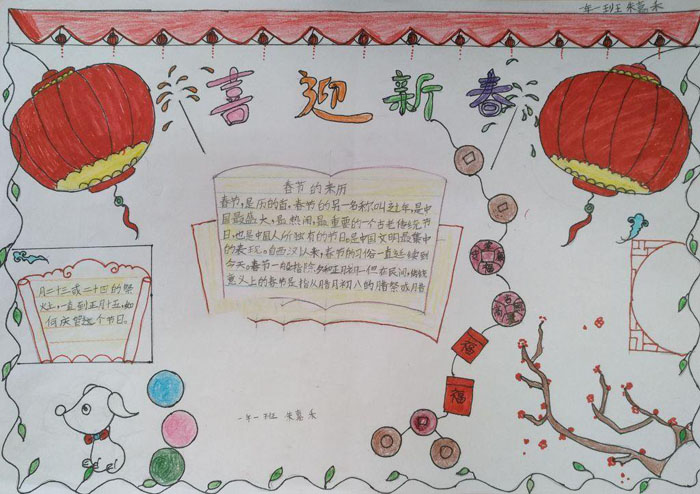 一年一班 朱嘉禾
喜迎新春
春节的来历
春节,是历的首,春节的另一名称叫过年,是中
国最盛大,最热闹,最重要的一个古老传统节
日,也是中国人所独有的节日。是中国文明最集中
的表现。自西汉以来,春节的习俗一直延续到
今天。春节一般指除夕和正月初一但在民间,传统
意义上的春节是指从腊月初八的腊祭或腊
月二十三或二十四的祭
灶上,一直到正月十五,如
何庆贺这个节日。
福
福
一年一班 朱嘉禾